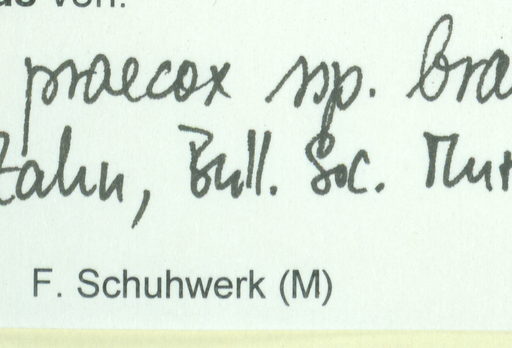 von:
praecox ssp. bra
Zahn, Bull. Soc. Mur
F. Schuhwerk (M)